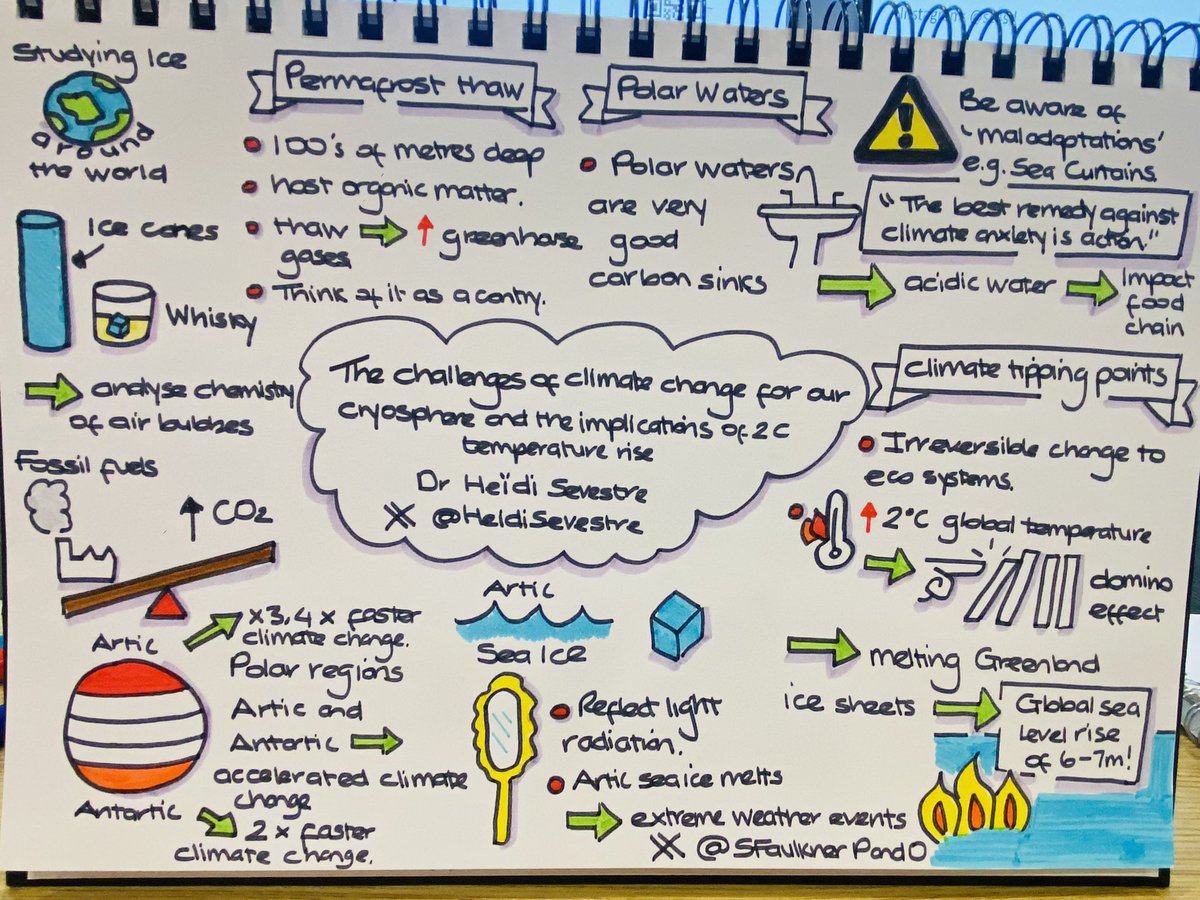 Studying Ice
around
the world
Ice cores
Whisky
analyse chemistry
of air bubbles
Permafrost thaw
100's of metres deep
host organic matter.
thaw ↑ greenhouse
gases
Think of it as a contry.
Polar Waters
Polar waters
are very
good
carbon sinks
Be aware of
'maladaptations'
e.g. Sea Curtains.
"The best remedy against
climate anxiety is action."
acidic water
Impact
food
chain
The challenges of climate change for our
cryosphere and the implications of 2c
temperature rise
Dr Heïdi Sevestre
X @HeidiSevestre
Climate tipping points
Irreversible change to
eco systems.
↑ 2°C global temperature
domino
effect
melting Greenland
ice sheets
Global sea
level rise
of 6-7m!
Fossil fuels
↑ CO2
Artic
x3,4 x faster
climate change.
Polar regions
Artic and
Antartic
accelerated climate
change
Antartic
2 x faster
climate change.
Artic
Sea Ice
Reflect light
radiation.
Artic sea ice melts
extreme weather events
X @SFaulknerPandO